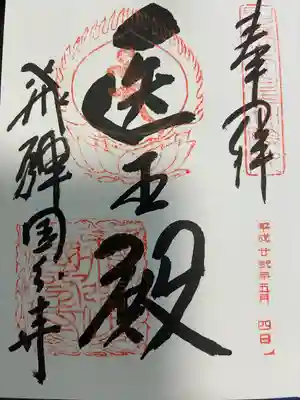 奉拝
平成廿弐年五月 四日
医王殿
飛驒国分寺